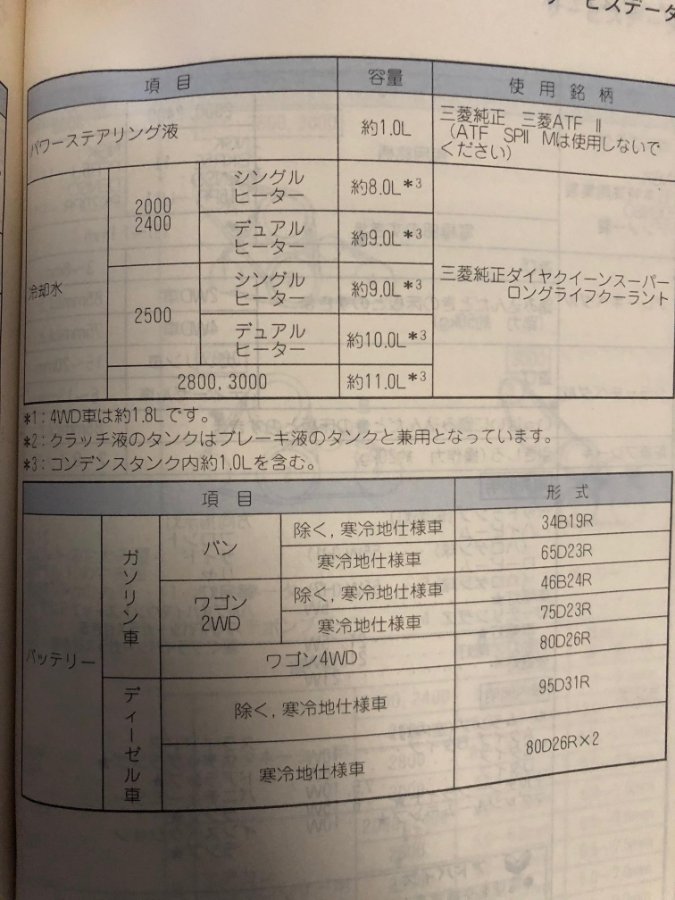 ービスデータ
項目 容量 使用銘柄
パワーステアリング液 約1.0L 三菱純正 三菱ATF Ⅱ
(ATF SPⅡ Mは使用しないで
ください)
冷却水 2000
2400 シングル
ヒーター 約8.0L*3
デュアル
ヒーター 約9.0L*3
2500 シングル
ヒーター 約9.0L*3 三菱純正ダイヤクイーンスーパー
ロングライフクーラント
デュアル
ヒーター 約10.0L*3
2800, 3000 約11.0L*3
*1:4WD車は約1.8Lです。
*2:クラッチ液のタンクはブレーキ液のタンクと兼用となっています。
*3:コンデンスタンク内約1.0Lを含む。
項目 形式
バッテリー ガソリン車 バン 除く,寒冷地仕様車 34B19R
寒冷地仕様車 65D23R
ワゴン
2WD 除く,寒冷地仕様車 46B24R
寒冷地仕様車 75D23R
ワゴン4WD 80D26R
ディーゼル車 除く,寒冷地仕様車 95D31R
寒冷地仕様車 80D26R×2